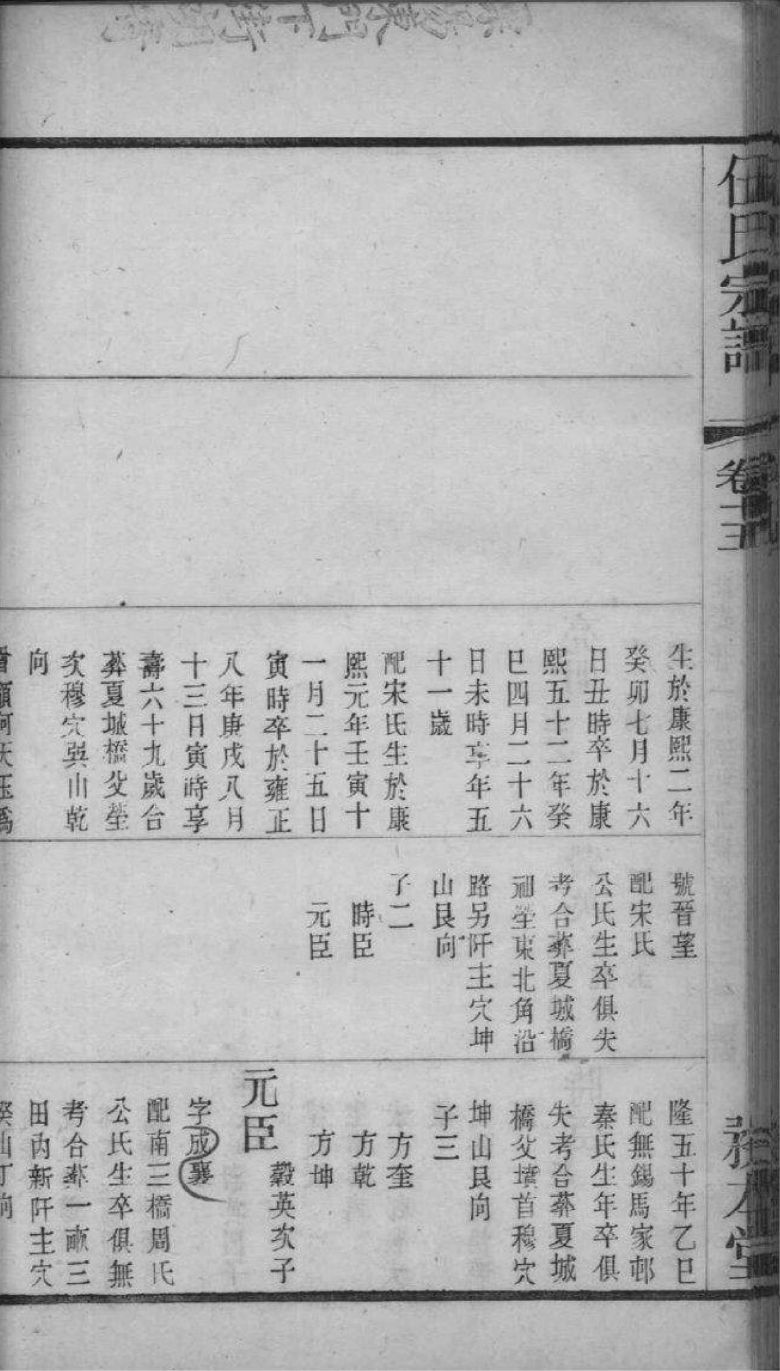 伍氏宗譜
卷十三
生於康熙二年
癸卯七月十六
日丑時卒於康
熙五十二年癸
巳四月二十六
日未時享年五
十一歲
配宋氏生於康
熙元年壬寅十
一月二十五日
寅時卒於雍正
八年庚戌八月
十三日寅時享
壽六十九歲合
葬夏城橋父塋
次穆穴巽山乾
向
號晉望
配宋氏
公氏生卒俱失
考合葬夏城橋
祖塋東北角沿
路另阡主穴坤
山艮向
子二
時臣
元臣
隆五十年乙巳
配無錫馬家邨
秦氏生年卒俱
失考合葬夏城
橋父墳首穆穴
坤山艮向
子三
方奎
方乾
方坤
元臣 毅英次子
字成襄
配南三橋周氏
公氏生卒俱無
考合葬一畝三
田內新阡主穴